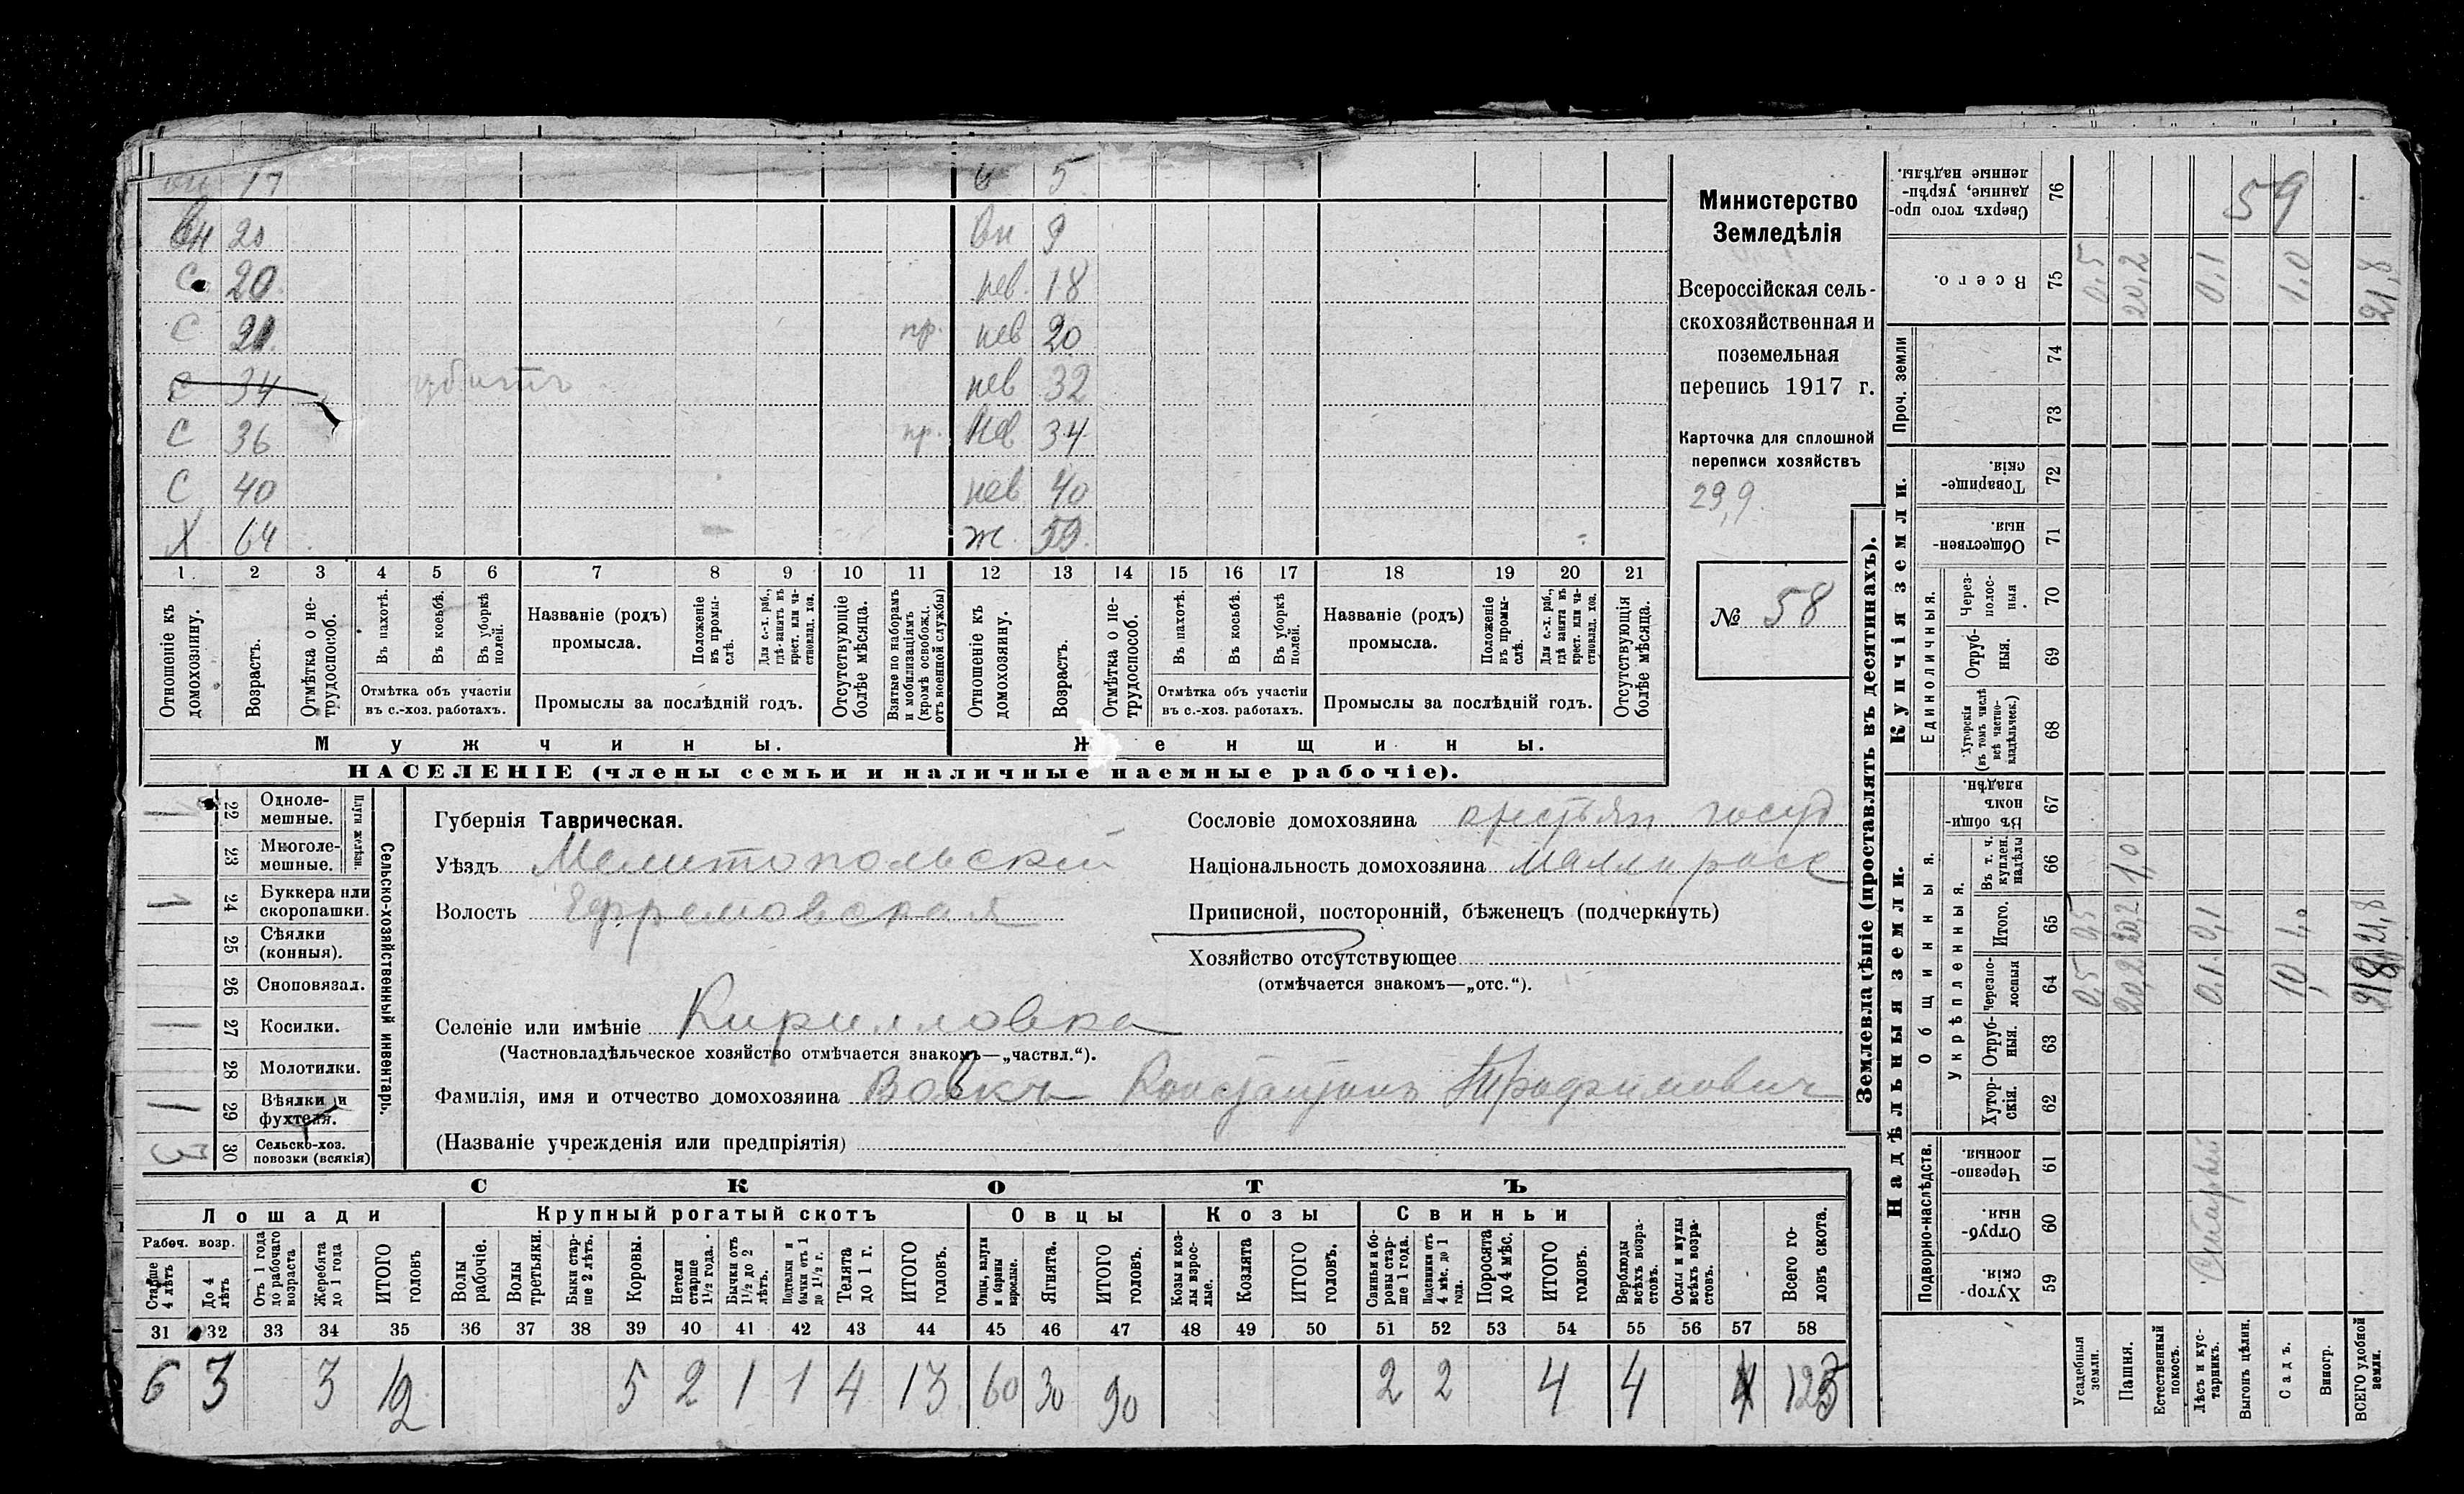 вн 17 6 5
вн 20 вн 9
С 20 нев. 18
С 21 пр. нев 20
С 34 убитъ нев 32
С 36 пр. нев 34
С 40 нев 40
Х 64 ж. 59
1 2 3 4 5 6 7 8 9 10 11 12 13 14 15 16 17 18 19 20 21
Отношеніе къ домохозяину.
Возрастъ.
Отмѣтка о не-
трудоспособ.
Въ пахотѣ.
Въ косьбѣ.
Въ уборкѣ полей.
Отмѣтка объ участіи
въ с.-хоз. работахъ.
Названіе (родъ)
промысла.
Положеніе
въ промы-
слѣ.
Для с.-х. раб.,
гдѣ занятъ въ
крест. или ча-
стновлад. хоз.
Промыслы за послѣдній годъ.
Отсутствующіе
болѣе мѣсяца.
Взятые по наборамъ
и мобилизаціямъ
(кромѣ освобожд.
отъ военной службы)
Отношеніе къ
домохозяину.
Возрастъ.
Отмѣтка о не-
трудоспособ.
Въ пахотѣ.
Въ косьбѣ.
Въ уборкѣ полей.
Отмѣтка объ участіи
въ с.-хоз. работахъ.
Названіе (родъ)
промысла.
Положеніе
въ промы-
слѣ.
Для с.-х. раб.,
гдѣ занята въ
крест. или ча-
стновлад. хоз.
Промыслы за послѣдній годъ.
Отсутствующія
болѣе мѣсяца.
Мужчины.
Женщины.
НАСЕЛЕНІЕ (члены семьи и наличные наемные рабочіе).
Министерство
Земледѣлія
Всероссійская сель-
скохозяйственная и
поземельная
перепись 1917 г.
Карточка для сплошной
переписи хозяйствъ
29,9
№ 58
Сельско-хозяйственный инвентарь.
Плуги желѣзн.
22 Одноле-
мешные. 1
23 Многоле-
мешные.
24 Буккера или
скоропашки. 1
25 Сѣялки
(конныя).
26 Сноповязал.
27 Косилки. 1
28 Молотилки.
29 Вѣялки и
фухтеля. 1
30 Сельско-хоз.
повозки (всякія) 3
Губернія Таврическая.
Уѣздъ Мелитопольскій
Волость Ефремовская
Селеніе или имѣніе Кирилловка
(Частновладѣльческое хозяйство отмѣчается знакомъ—„частвл.“).
Фамилія, имя и отчество домохозяина Вовкъ Константинъ Трофимович
(Названіе учрежденія или предпріятія)
Сословіе домохозяина крестьян госуд.
Національность домохозяина маллиросс
Приписной, посторонній, бѣженецъ (подчеркнуть)
Хозяйство отсутствующее
(отмѣчается знакомъ—„отс.“).
СКОТЪ
Лошади Крупный рогатый скотъ Овцы Козы Свиньи
Рабоч. возр.
Старше
4 лѣтъ
До 4
лѣтъ
Отъ 1 года
до рабочаго
возраста
Жеребята
до 1 года
ИТОГО
головъ
Волы
рабочіе.
Волы
третьяки.
Быки стар-
ше 2 лѣтъ.
Коровы.
Нетели
старше
1½ года.
Бычки отъ
1½ до 2
лѣтъ.
Подтелки и
бычки отъ 1
до 1½ г.
Телята
до 1 г.
ИТОГО
головъ.
Овцы, валухи
и бараны
взрослые.
Ягнята.
ИТОГО
головъ.
Козы и коз-
лы взрос-
лые.
Козлята
ИТОГО
головъ.
Свиньи и бо-
ровы стар-
ше 1 года.
Подсвинки отъ
4 мѣс. до 1
года.
Поросята
до 4 мѣс.
ИТОГО
головъ.
Верблюды
всѣхъ возра-
стовъ.
Ослы и мулы
всѣхъ возра-
стовъ.
Всего го-
ловъ скота.
31 32 33 34 35 36 37 38 39 40 41 42 43 44 45 46 47 48 49 50 51 52 53 54 55 56 57 58
6 3 3 12 5 2 1 1 4 13 60 30 90 2 2 4 4 123
Землевладѣніе (проставлять въ десятинахъ).
Надѣльныя земли.
Купчія земли.
Проч. земли
Подворно-наслѣдств.
Общинныя.
Укрѣпленныя.
Единоличныя.
76 Сверхъ того про-
данные, укрѣп-
ленные надѣлы.
59
75 Всего. 0,5 20,2 0,1 1,0 21,8
74
73
72 Товарище-
скія.
71 Обществен-
ныя.
70 Через-
полос-
ныя
69 Отруб-
ныя.
68 Хуторскія
(въ томъ числѣ
всѣ частно-
владѣльческ.)
67 Въ общи-
номъ
владѣн.
66 Въ т. ч.
куплен.
надѣлы 1,0
65 Итого. 0,5 20,2 0,1 1,0 21,8
64 Черезпо-
лосныя 0,5 20,2 0,1 1,0 21,8
63 Отруб-
ныя.
62 Хутор-
скія.
61 Черезпо-
лосныя.
60 Отруб-
ныя.
59 Хутор-
скія.
Усадебныя
земли.
Пашня.
Естественный
покосъ.
Лѣсъ и кус-
тарникъ.
Выгонъ цѣлин.
Садъ.
Виногр.
ВСЕГО удобной
земли.